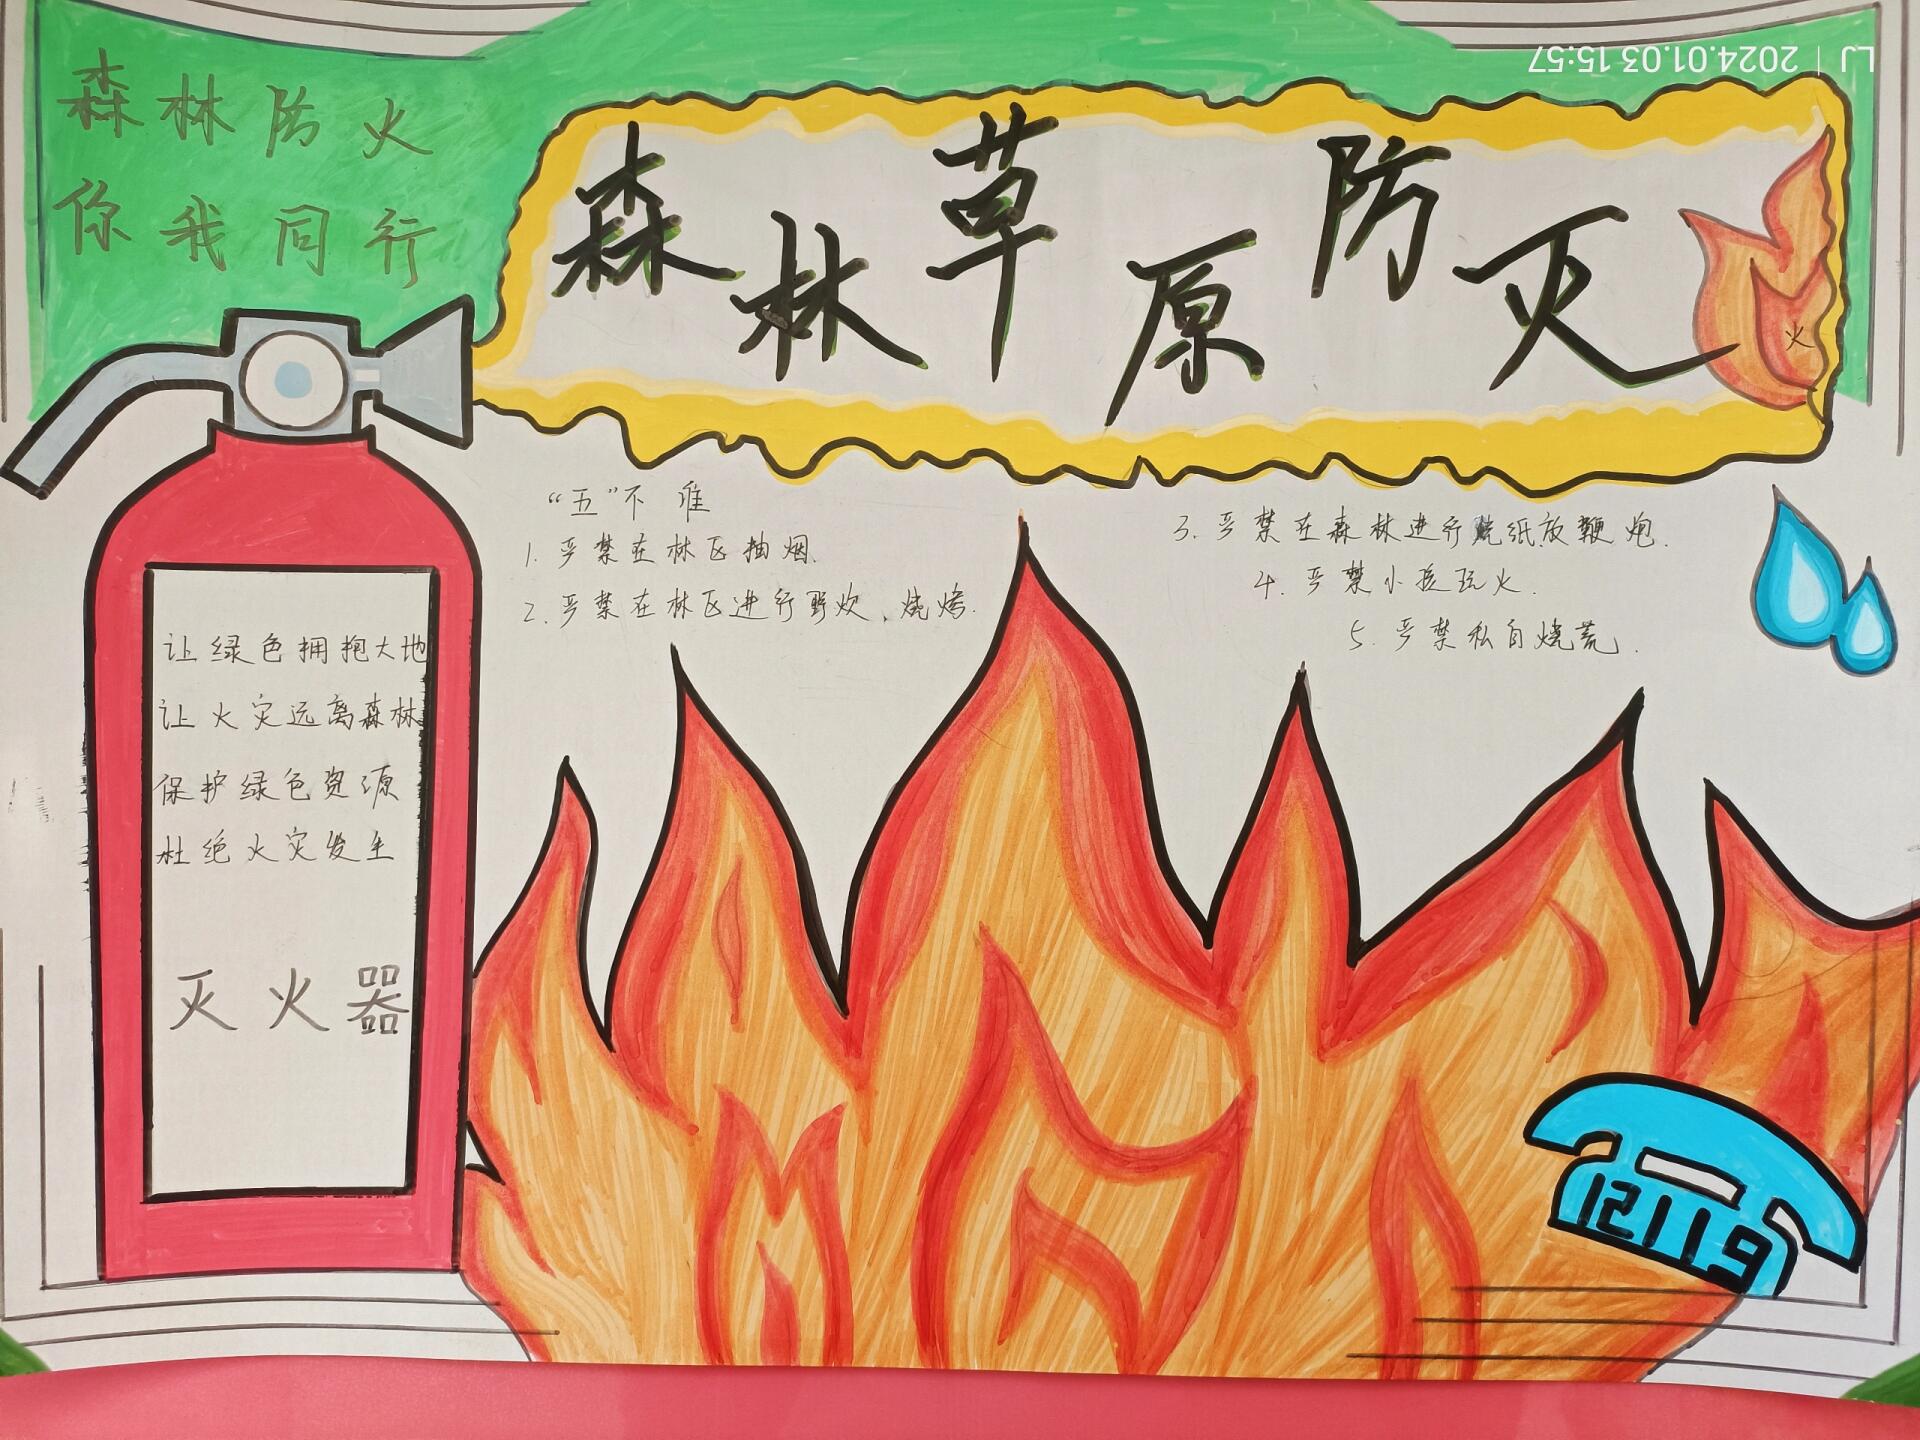 LJ | 2024.01.03 15:57
森林防火
你我同行
森林草原防灭
火
“五”不准
1. 严禁在林区抽烟.
2. 严禁在林区进行野炊、烧烤.
3. 严禁在森林进行烧纸、放鞭炮.
4. 严禁小孩玩火.
5. 严禁私自烧荒.
让绿色拥抱大地
让火灾远离森林
保护绿色资源
杜绝火灾发生
灭火器
12119